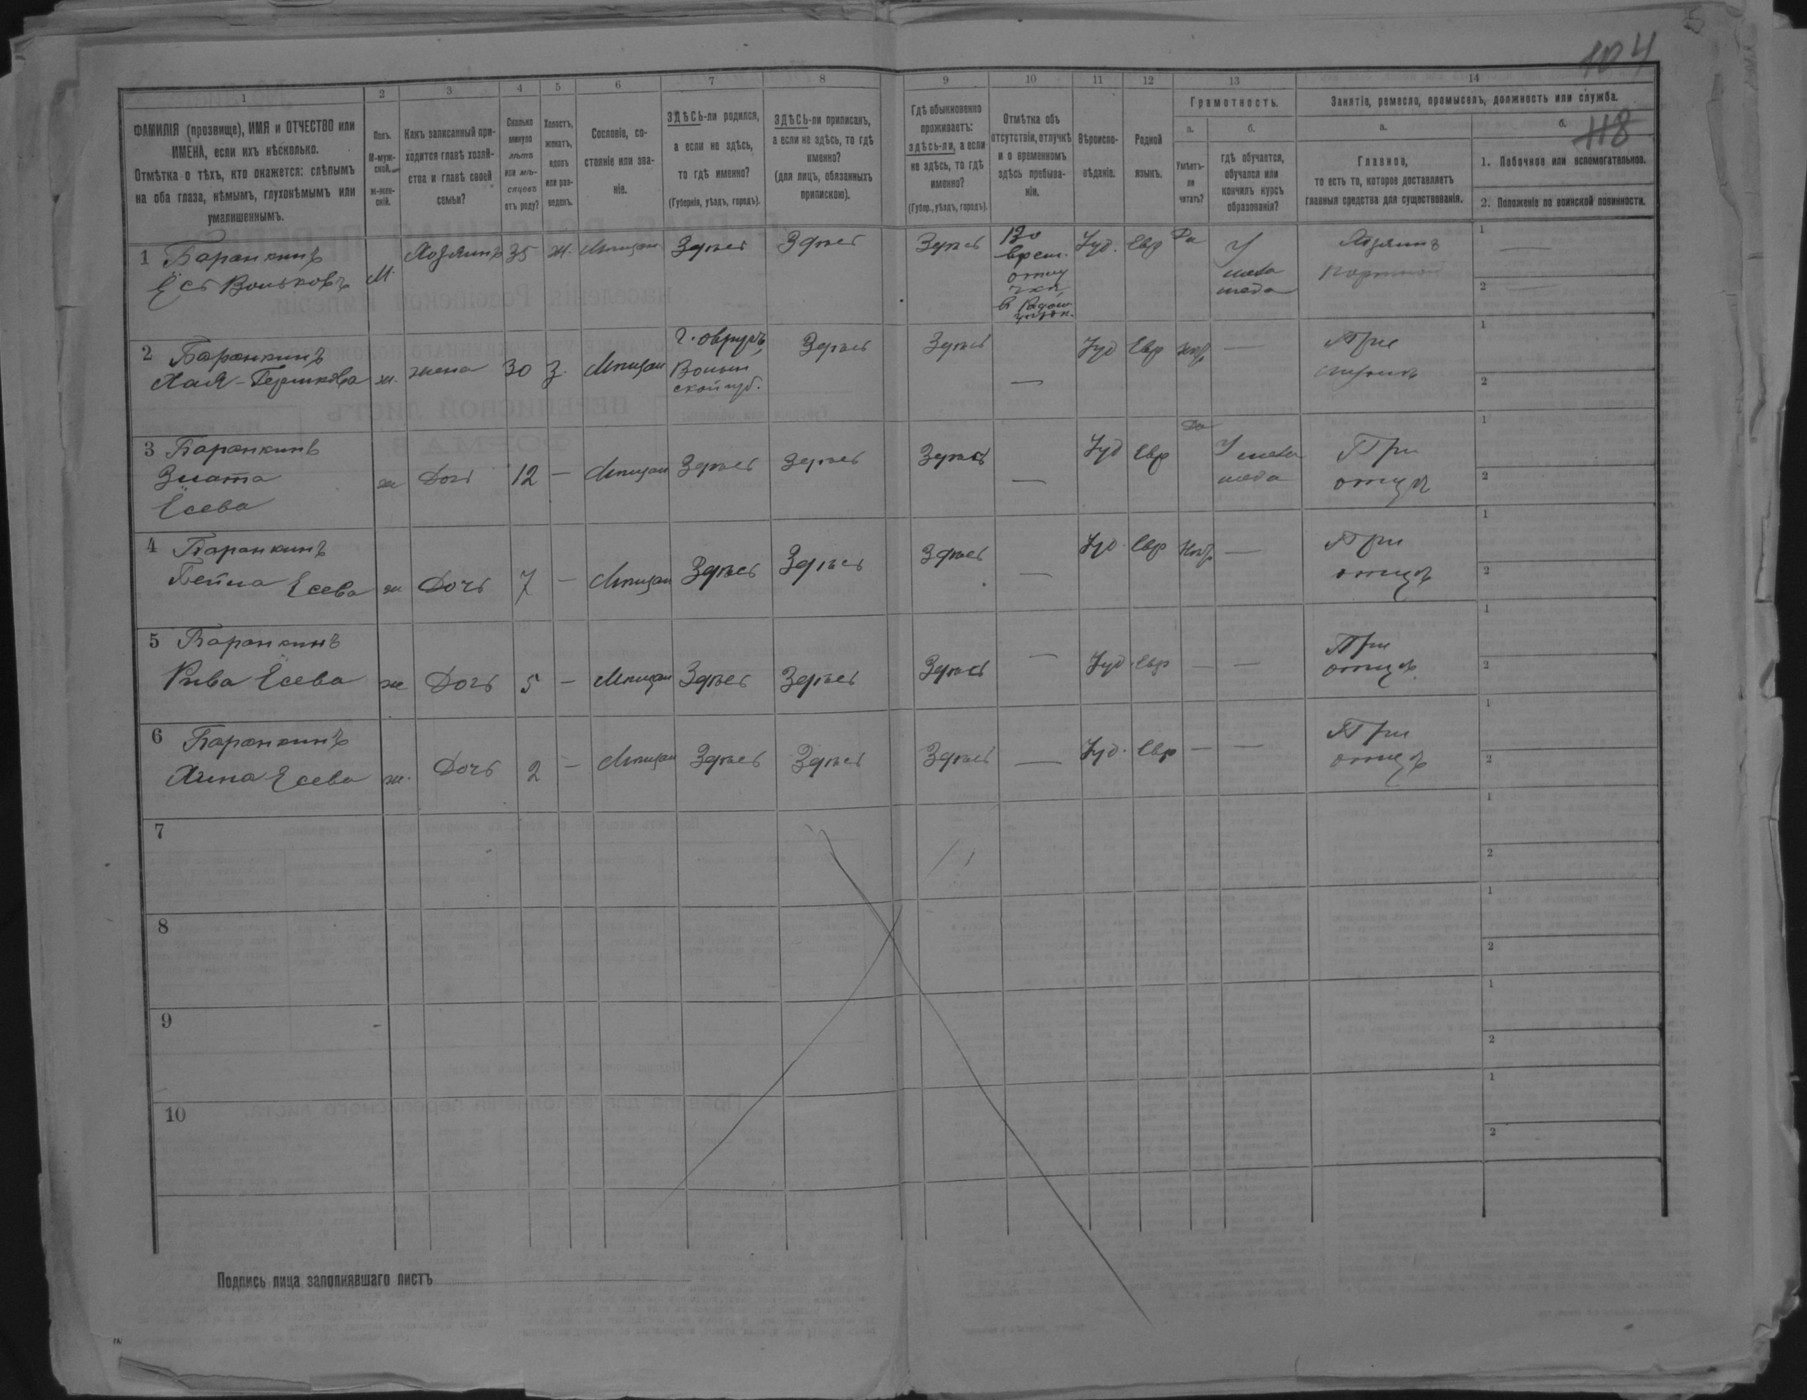 104
118
1
2
3
4
5
6
7
8
9
10
11
12
13
14
ФАМИЛІЯ (прозвище), ИМЯ и ОТЧЕСТВО или
ИМЕНА, если ихъ нѣсколько.
Отмѣтка о тѣхъ, кто окажется: слѣпымъ
на оба глаза, нѣмымъ, глухонѣмымъ или
умалишеннымъ.
Полъ.
М-муж-
ской,
ж-жен-
скій.
Какъ записанный при-
ходится главѣ хозяй-
ства и главѣ своей
семьи?
Сколько
минуло
лѣтъ
или мѣ-
сяцевъ
отъ роду?
Холостъ,
женатъ,
вдовъ
или раз-
веденъ.
Сословіе, со-
стояніе или зва-
ніе.
ЗДѢСЬ-ли родился,
а если не здѣсь,
то гдѣ именно?
(Губернія, уѣздъ, городъ).
ЗДѢСЬ-ли приписанъ,
а если не здѣсь, то гдѣ
именно?
(для лицъ, обязанныхъ
припискою).
Гдѣ обыкновенно
проживаетъ:
здѣсь-ли, а если
не здѣсь, то гдѣ
именно?
(Губер., уѣздъ, городъ).
Отмѣтка объ
отсутствіи, отлучкѣ
и о временномъ
здѣсь пребыва-
ніи.
Вѣроиспо-
вѣданіе.
Родной
языкъ.
Грамотность.
а.
Умѣетъ-
ли
читать?
б.
гдѣ обучается,
обучался или
кончилъ курсъ
образованія?
Занятіе, ремесло, промыселъ, должность или служба.
а.
Главное,
то есть то, которое доставляетъ
главныя средства для существованія.
б.
1. Побочное или вспомогательное.
2. Положеніе по воинской повинности.
1 Баранкинъ
Есь Вольковъ М. Хозяинъ 35 ж. Мѣщан Здѣсь Здѣсь Здѣсь Во
врем.
отлу
чкѣ
в
Іуд. Евр Да У
мела
меда
Хозяинъ
портной
1 —
2 —
2 Баранкинъ
Хая-Гершкова ж. жена 30 З. Мѣщан г. Овручъ,
Волын
ской губ.
Здѣсь Здѣсь — Іуд Евр Нѣтъ — При
мужѣ
1
2
3 Баранкинъ
Злата
Есева ж Дочь 12 — Мѣщан Здѣсь Здѣсь Здѣсь — Іуд Евр Да У мела
меда
При
отцѣ
1
2
4 Баранкинъ
Бейла Есева ж Дочь 7 — Мѣщан Здѣсь Здѣсь Здѣсь — Іуд Евр Нѣтъ — При
отцѣ
1
2
5 Баранкинъ
Рива Есева ж Дочь 5 — Мѣщан Здѣсь Здѣсь Здѣсь — Іуд Евр — — При
отцѣ
1
2
6 Баранкинъ
Хина Есева ж. Дочь 2 — Мѣщан Здѣсь Здѣсь Здѣсь — Іуд. Евр — — При
отцѣ
1
2
7
1
2
8
1
2
9
1
2
10
1
2
Подпись лица заполнявшаго листъ